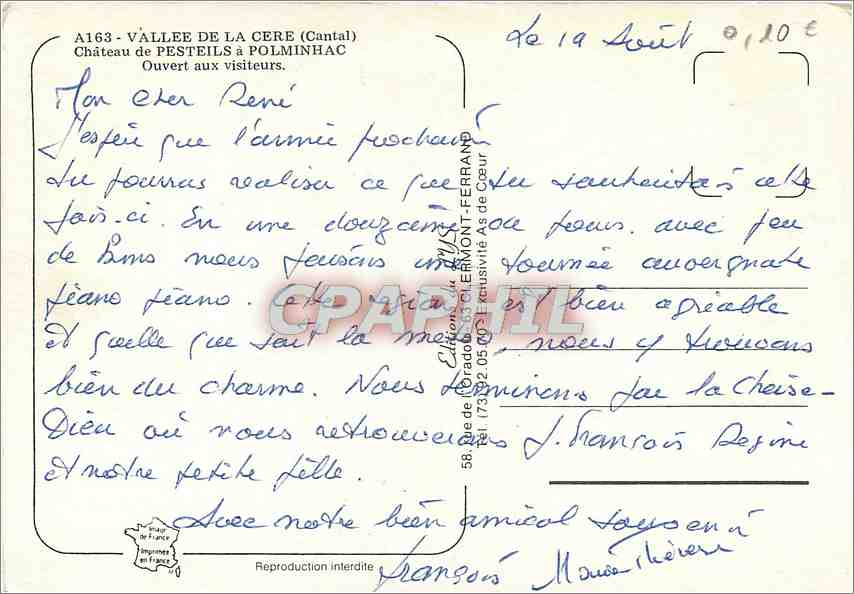 A163 - VALLEE DE LA CERE (Cantal)
Château de PESTEILS à POLMINHAC
Ouvert aux visiteurs.
Le 19 Août
0,10 €
Mon cher René
J'espère que l'année prochaine
tu pourras realiser ce que tu souhaitais cette
fois-ci. En une douzaine de jours. avec peu
de Kms nous faisons une tournée auvergnate
piano piano. Cette région est bien agréable
et quelle que soit la météo, nous y trouvons
bien du charme. Nous terminerons par la Chaise-
Dieu où nous retrouverons J. François Regine
et notre petite fille.
Avec notre bien amical souvenir
François Marie Thérèse
Editions du LYS
58, rue de l'Oradou - 63 CLERMONT-FERRAND
Tél. (73) 92.05.70 - Exclusivité As de Cœur
CPAPHIL
Image
de France
Imprimée
en France
Reproduction interdite